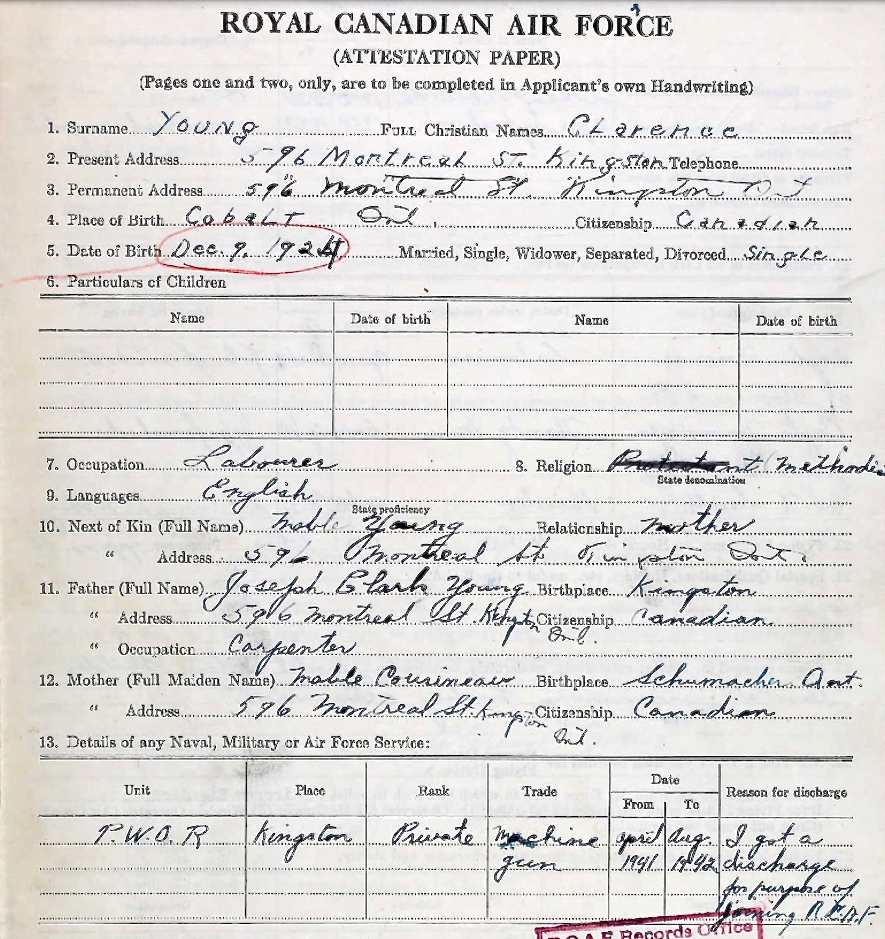 ROYAL CANADIAN AIR FORCE
(ATTESTATION PAPER)
(Pages one and two, only, are to be completed in Applicant's own Handwriting)
1. Surname Young Full Christian Names Clarence
2. Present Address 596 Montreal St. Kingston Telephone
3. Permanent Address 596 Montreal St. Kingston Ont
4. Place of Birth Cobalt Ont. Citizenship Canadian
5. Date of Birth Dec. 9. 1924 Married, Single, Widower, Separated, Divorced Single
6. Particulars of Children
Name Date of birth Name Date of birth
7. Occupation Labourer 8. Religion Protestant Methodis
State denomination
9. Languages English
State proficiency
10. Next of Kin (Full Name) Mable Young Relationship mother
" Address 596 Montreal St. Kingston Ont.
11. Father (Full Name) Joseph Clark Young Birthplace Kingston
" Address 596 Montreal St. Kingston Ont. Citizenship Canadian
" Occupation Carpenter
12. Mother (Full Maiden Name) Mable Cousineau Birthplace Schumacher Ont.
" Address 596 Montreal St. Kingston Ont. Citizenship Canadian
13. Details of any Naval, Military or Air Force Service:
Unit Place Rank Trade Date Reason for discharge
From To
P.W.O.R Kingston Private Machine gun april 1941 Aug. 1942 I got a discharge for purpose of joining R.C.A.F.
R.C.A.F. Records Office